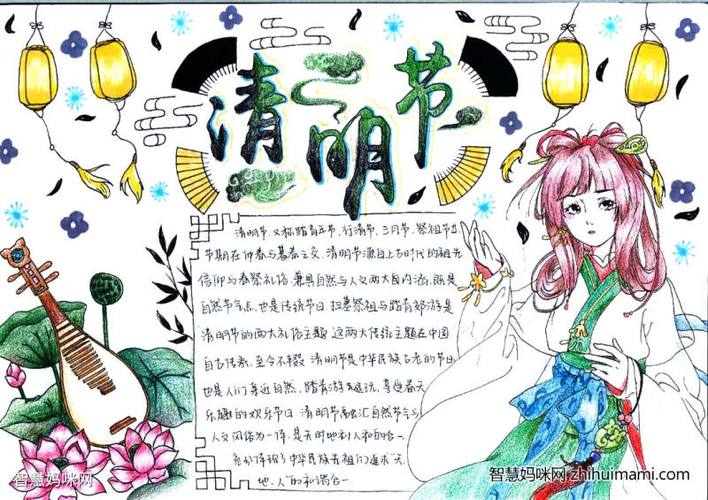 清明节
清明节,又称踏青节、行清节、三月节、祭祖节等
节期在仲春与暮春之交。清明节源自上古时代的祖先
信仰与春祭礼俗,兼具自然与人文两大内涵,既是
自然节气点,也是传统节日,扫墓祭祖与踏青郊游是
清明节的两大礼俗主题,这两大传统主题在中国
自古传承,至今不辍。清明节是中华民族古老的节日
也是人们亲近自然、踏青游玩、享受春天
乐趣的欢乐节日。清明节融汇自然节气与
人文风俗为一体,是天时地利人和的合一
充分体现了中华民族先祖们追求"天、
地、人"的和谐合一
智慧妈咪网
智慧妈咪网 zhihuimami.com
智慧妈咪网